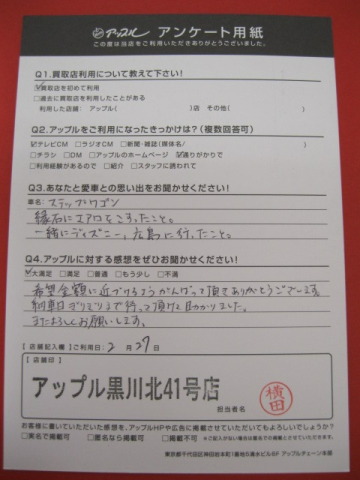 アップル アンケート用紙
この度は当店をご利用いただきありがとうございました。
Q1.買取店利用について教えて下さい!
☑買取店を初めて利用
□過去に買取店を利用したことがある
利用した店舗: アップル( )店 その他( )
Q2.アップルをご利用になったきっかけは?(複数回答可)
☑テレビCM □ラジオCM □新聞・雑誌(媒体名/ )
□チラシ □DM □アップルのホームページ ☑通りがかりで
□利用経験があるので □紹介 □スタッフに誘われて
Q3.あなたと愛車との思い出をお聞かせください!
車名: ステップワゴン
縁石にエアロをこすったこと。
一緒にディズニー、広島に行ったこと。
Q4.アップルに対する感想をぜひお聞かせください!
☑大満足 □満足 □普通 □もう少し □不満
希望金額に近づけるようがんばって頂きありがとうございます。
納車日ギリギリまで待って頂けて助かりました。
またよろしくお願いします。
【店舗記入欄】ご利用日: 2 月 27 日
【店舗印】
アップル黒川北41号店
担当者名 横田
お客様に書いていただいた感想を、アップルHPや広告に掲載させていただいてもよろしいでしょうか?
□実名で掲載可 □匿名なら掲載可 □掲載不可 ※ご記入がない場合は匿名での掲載とさせていただきます。
東京都千代田区神田岩本町1番地5清水ビル6F アップルチェーン本部